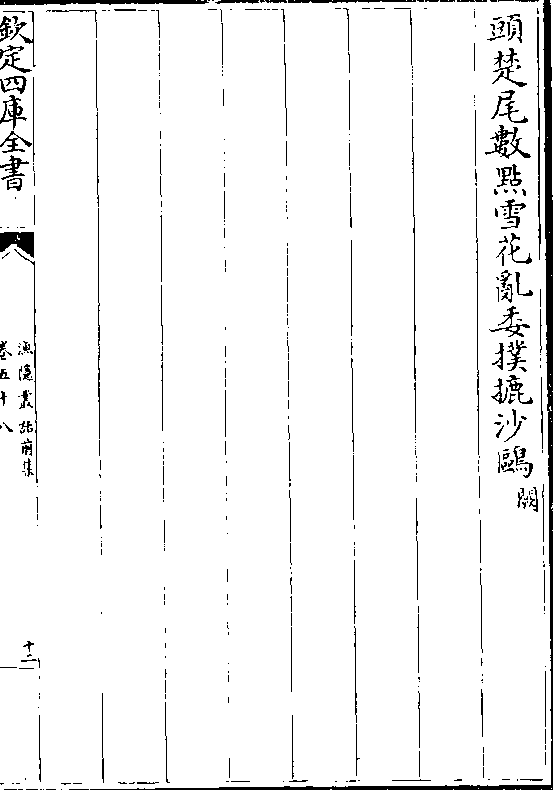 頭楚尾數點雪花亂委撲摝沙鷗闕
欽定四庫全書
漁隱叢話前集
卷五十八
十二